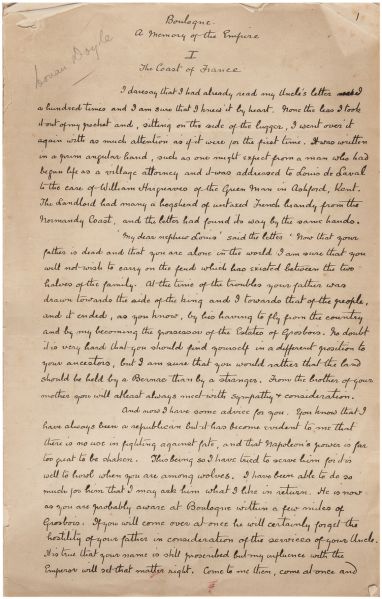 1
Boulogne.
A Memory of the Empire
Conan Doyle
I
The Coast of France
I daresay that I had already read my Uncle's letter
a hundred times and I am sure that I knew it by heart. None the less I took
it out of my pocket and, sitting on the side of the lugger, I went over it
again with as much attention as if it were for the first time. It was written
in a prim angular hand, such as one might expect from a man who had
begun life as a village attorney and it was addressed to Louis de Laval
to the care of William Hargreaves of the Green Man in Ashford, Kent.
The landlord had many a hogshead of untaxed French brandy from the
Normandy Coast, and the letter had found its way by the same hands.
'My dear nephew Louis' said the letter 'Now that your
father is dead and that you are alone in the world I am sure that you
will not wish to carry on the feud which has existed between the two
halves of the family. At the time of the troubles your father was
drawn towards the side of the king and I towards that of the people,
and it ended, as you know, by his having to fly from the country
and by my becoming the possessor of the Estates of Grosbois. No doubt
it is very hard that you should find yourself in a different position to
your ancestors, but I am sure that you would rather that the land
should be held by a Bernac than by a stranger. From the brother of your
mother you will atleast always meet with sympathy & consideration.
And now I have some advice for you. You know that I
have always been a republican but it has become evident to me that
there is no use in fighting against fate, and that Napoleon's power is far
too great to be shaken. This being so I have tried to serve him for it is
well to howl when you are among wolves. I have been able to do so
much for him that I may ask him what I like in return. He is now
as you are probably aware at Boulogne within a few miles of
Grosbois. If you will come over at once he will certainly forget the
hostility of your father in consideration of the services of your Uncle.
It is true that your name is still proscribed but my influence with the
Emperor will set that matter right. Come to me then, come at once and